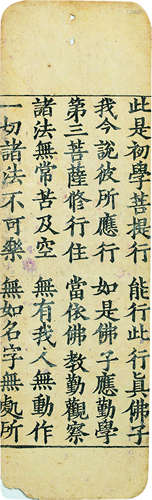 此是初學菩提行 能行此行真佛子
我今說彼所應行 如是佛子應勤學
第三菩薩修行住 當依佛教勤觀察
諸法無常苦及空 無有我人無動作
一切諸法不可樂 無如名字無處所